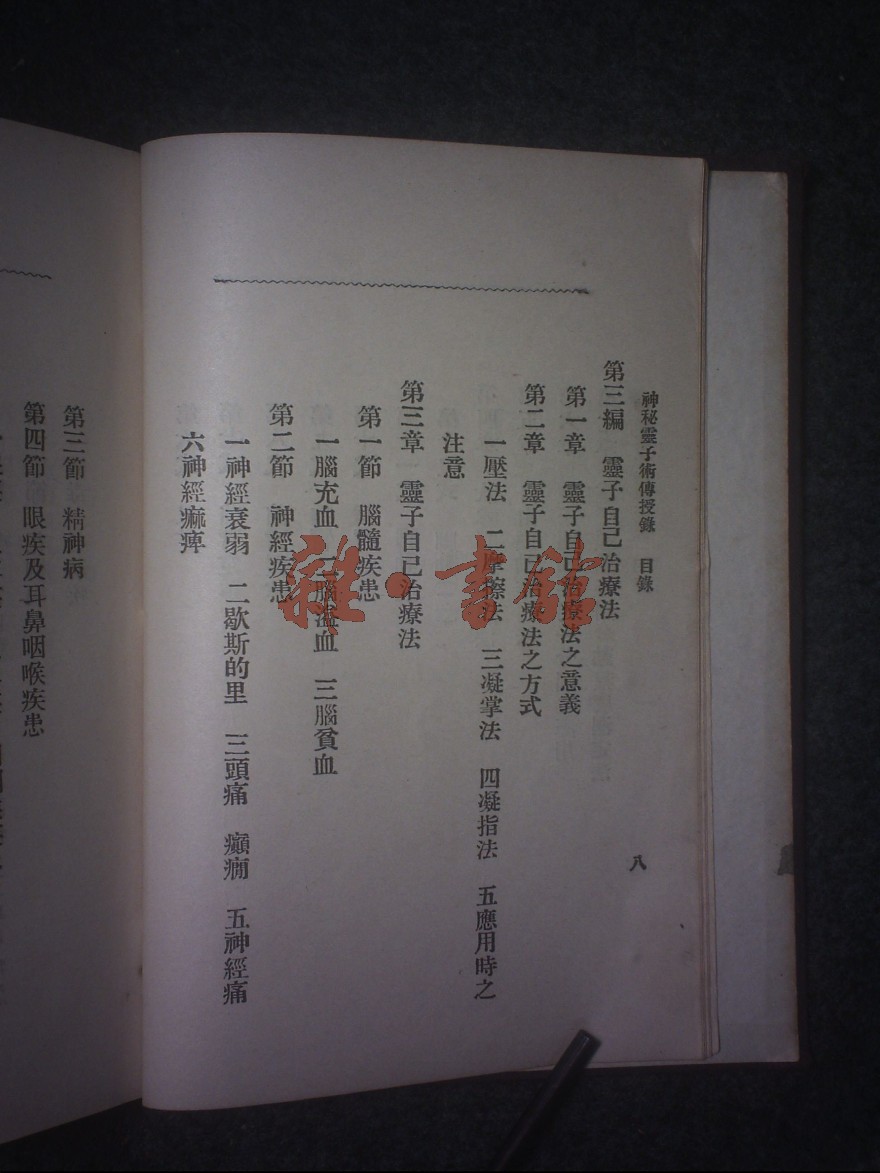 神秘靈子術傳授錄　目錄
八
第三編　靈子自己治療法
第一章　靈子自己治療法之意義
第二章　靈子自己治療法之方式
一壓法　二摩擦法　三凝掌法　四凝指法　五應用時之
注意
第三章　靈子自己治療法
第一節　腦髓疾患
一腦充血　二腦溢血　三腦貧血
第二節　神經疾患
一神經衰弱　二歇斯的里　三頭痛　癲癇　五神經痛
六神經痲痺
第三節　精神病
第四節　眼疾及耳鼻咽喉疾患
雜·書館